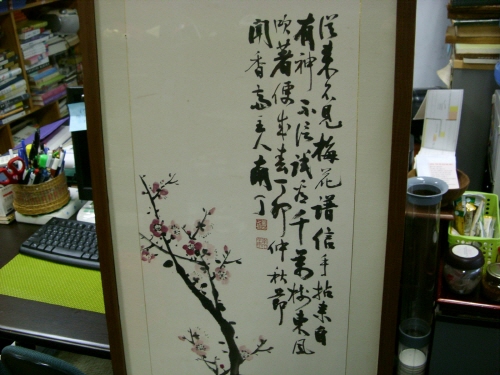 從來不見梅花譜信手拈來自
有神不信試看千萬樹東風
吹著便成春丁卯仲秋節
聞香高主人南丁